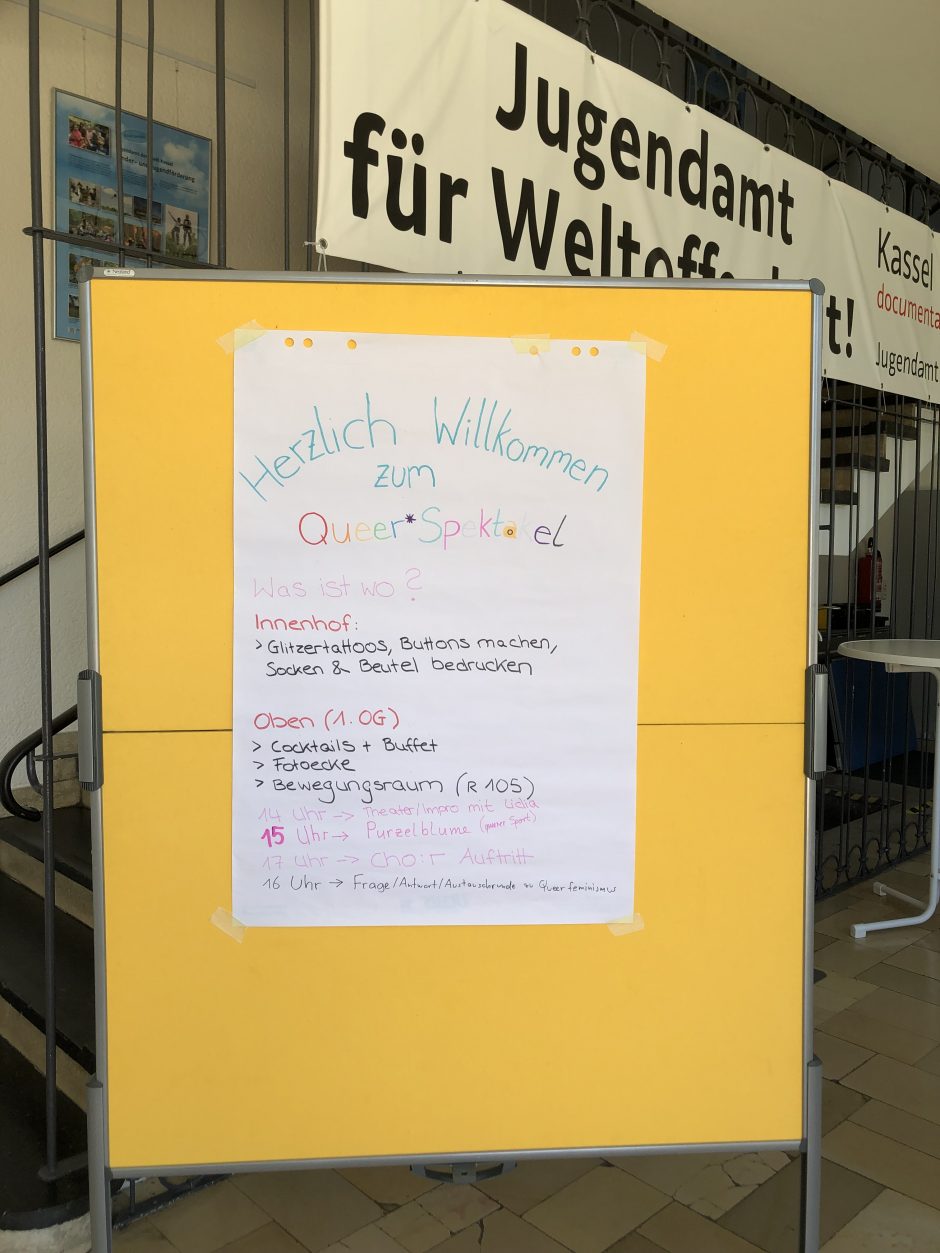 Jugendamt
für Weltoffe
t!
Kassel
documenta
Jugendamt
Neuland
Herzlich Willkommen
zum
Queer*Spektakel
Was ist wo?
Innenhof:
> Glitzertattoos, Buttons machen,
Socken & Beutel bedrucken
Oben (1. OG)
> Cocktails + Buffet
> Fotoecke
> Bewegungsraum (R 105)
14 Uhr -> Theater/Impro mit Lidia
15 Uhr -> Purzelblume (queer Sport)
17 Uhr -> Cho:r Auftritt
16 Uhr -> Frage/Antwort/Austauschrunde zu Queerfeminismus